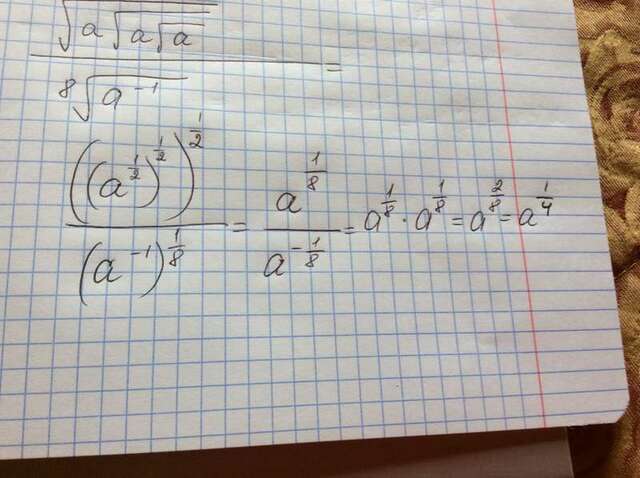 √(a√(a√a)) / ⁸√(a⁻¹) =
((a^(1/2))^(1/2))^(1/2) / (a⁻¹)^(1/8) = a^(1/8) / a^(-1/8) = a^(1/8) · a^(1/8) = a^(2/8) = a^(1/4)